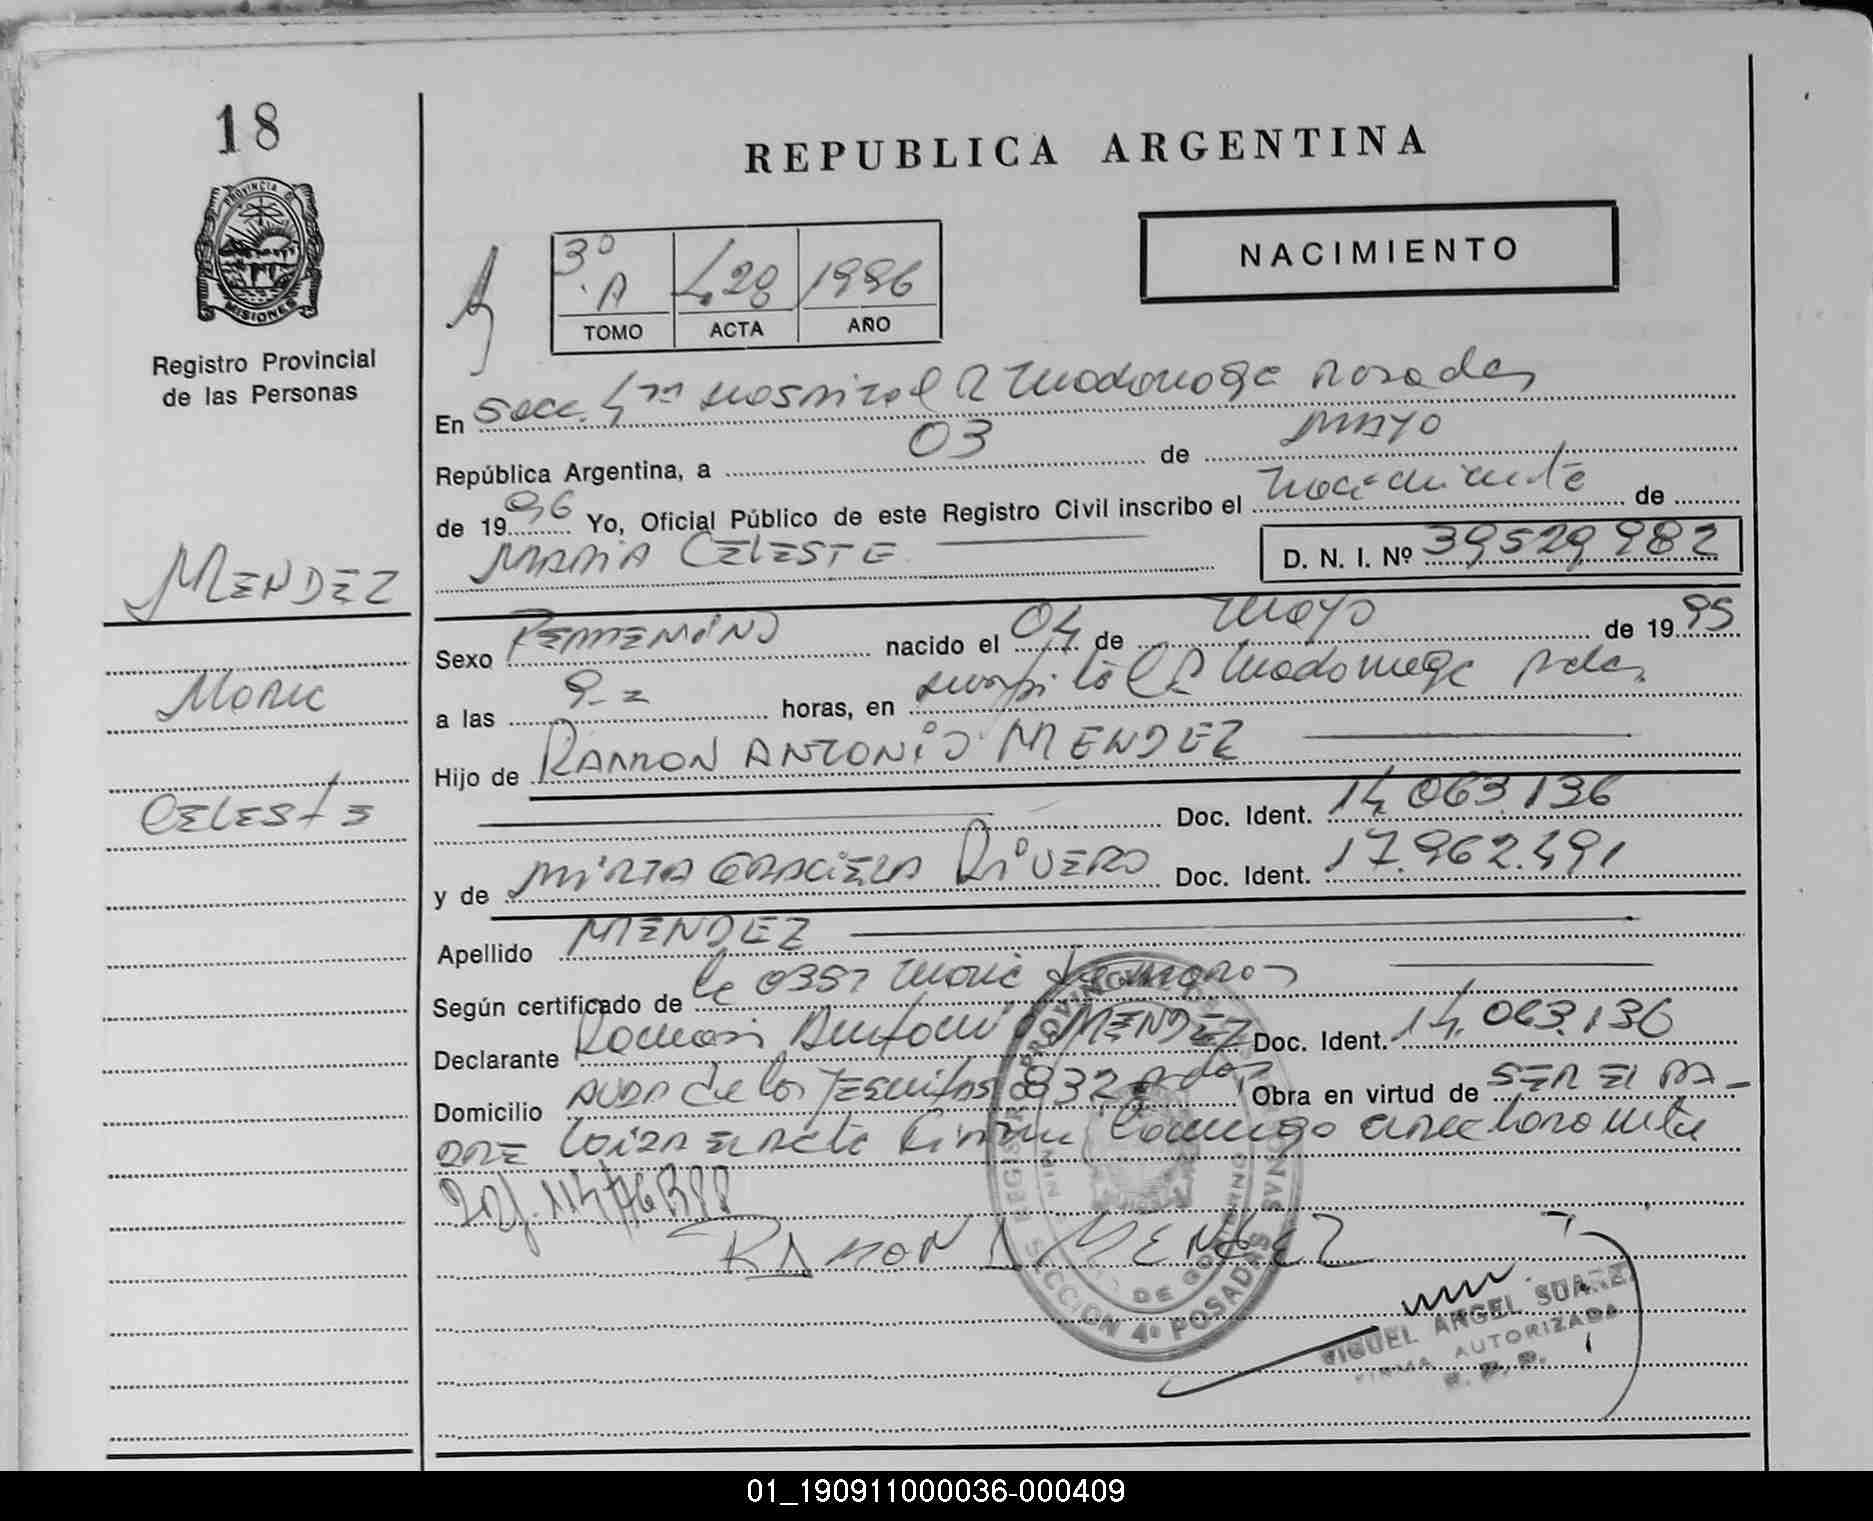 18
REPUBLICA ARGENTINA
PROVINCIA DE
MISIONES
Registro Provincial
de las Personas
NACIMIENTO
3º A 428 1996
TOMO ACTA AÑO
En Secc. 4ta Hospital R Madariaga Posadas
República Argentina, a 03 de MAYO
de 1996 Yo, Oficial Público de este Registro Civil inscribo el nacimiento de
MARIA CELESTE D. N. I. Nº 39529982
MENDEZ
Maria
CELESTE
Sexo FEMENINO nacido el 04 de mayo de 1995
a las 9 horas, en Hospital R Madariaga Pdas.
Hijo de RAMON ANTONIO MENDEZ
Doc. Ident. 14.063.136
y de MIRTA GRACIELA RIVERO Doc. Ident. 17.962.491
Apellido MENDEZ
Según certificado de
Declarante Ramon Antonio MENDEZ Doc. Ident. 14.063.136
Domicilio AVDA de los Jesuitas 832 Pdas Obra en virtud de SER EL PA-
DRE
RAMON A MENDEZ
SECCION 4º POSADAS
MIGUEL ANGEL SUAREZ
FIRMA AUTORIZADA
01_190911000036-000409